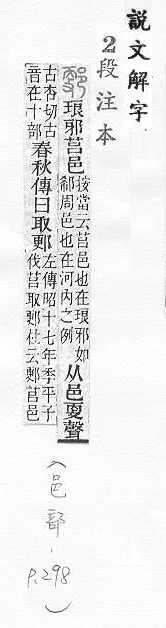 說文解字
2段注本
琅邪莒邑按當云莒邑也在琅邪如郗周邑也在河內之例从邑㪅聲
古杏切古音在十部春秋傳曰取郠左傳昭十七年季平子伐莒取郠杜云郠莒邑
(邑部.P.298)